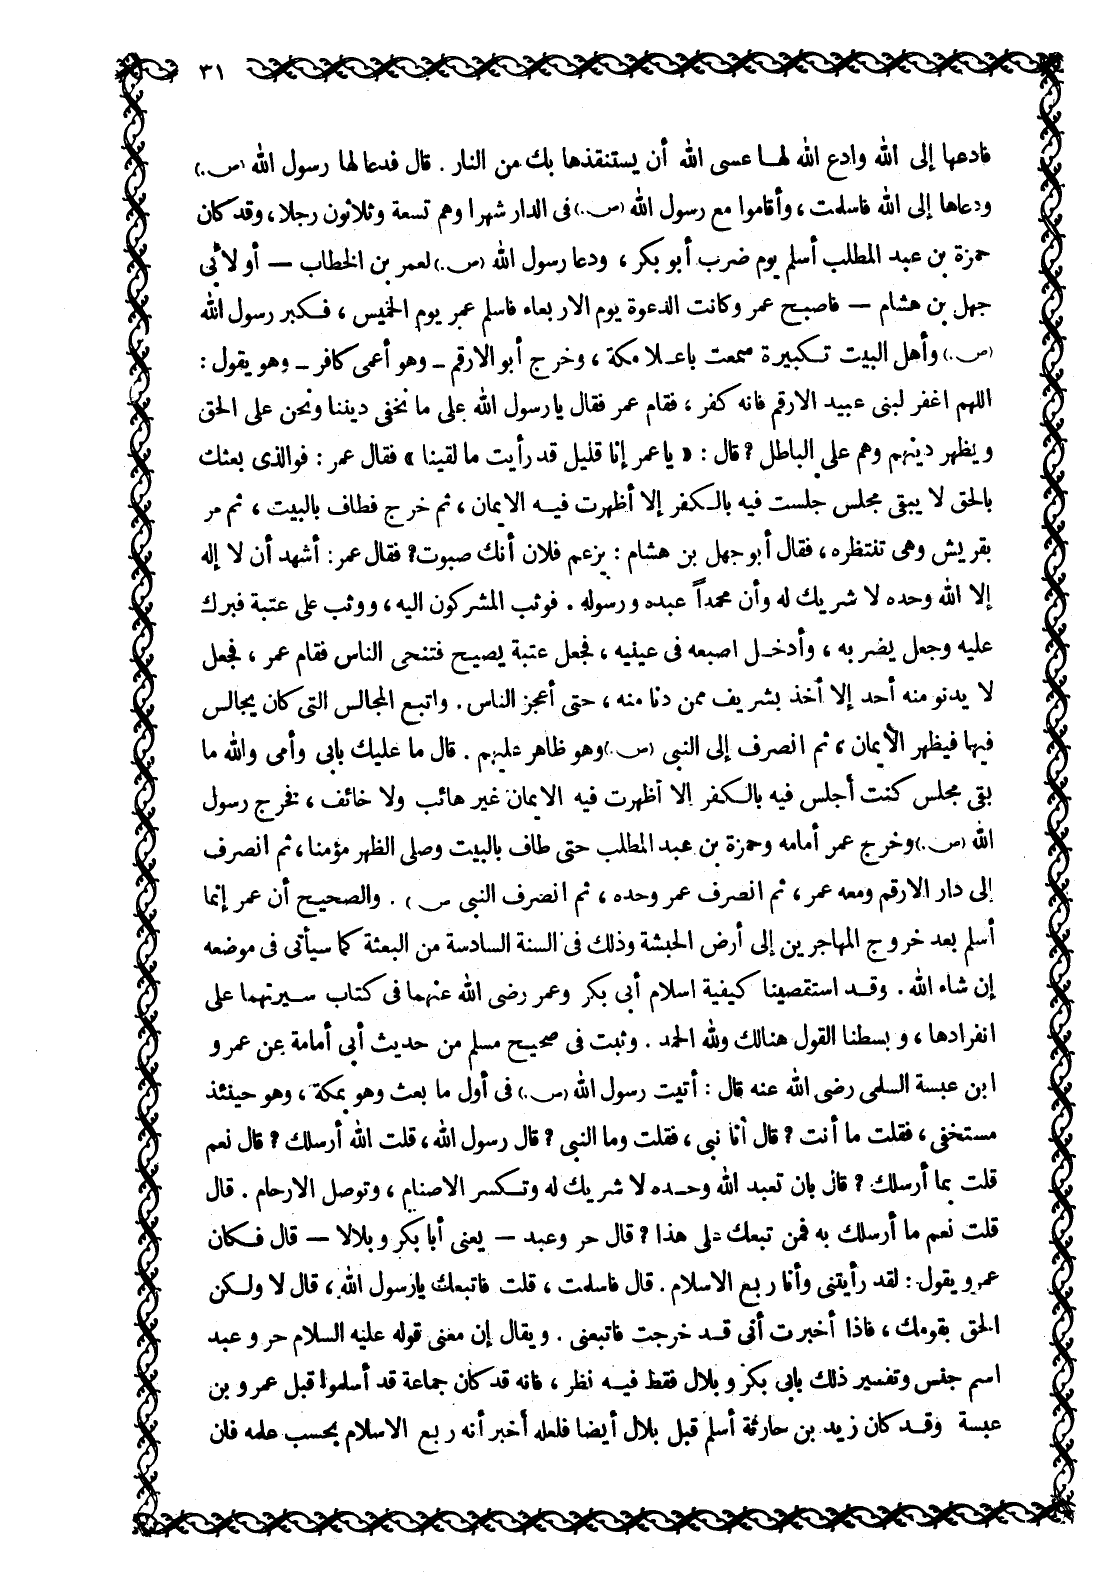 ٣١
فادعها إلى الله وادع الله لها عسى الله أن يستنقذها بك من النار . قال فدعا لها رسول الله (ص.)
ودعاها إلى الله فاسلمت ، وأقاموا مع رسول الله (ص.) فى الدار شهرا وهم تسعة وثلاثون رجلا ، وقد كان
حمزة بن عبد المطلب أسلم يوم ضرب أبو بكر ، ودعا رسول الله (ص.) لعمر بن الخطاب — أو لأبى
جهل بن هشام — فاصبح عمر وكانت الدعوة يوم الاربعاء فاسلم عمر يوم الخميس ، فكبر رسول الله
(ص.) وأهل البيت تكبيرة سمعت باعلا مكة ، وخرج أبو الارقم ــ وهو أعمى كافر ــ وهو يقول :
اللهم اغفر لبنى عبيد الارقم فانه كفر ، فقام عمر فقال يا رسول الله على ما نخفى ديننا ونحن على الحق
ويظهر دينهم وهم على الباطل ? قال : « يا عمر إنا قليل قد رأيت ما لقينا » فقال عمر : فوالذى بعثك
بالحق لا يبقى مجلس جلست فيه بالكفر إلا أظهرت فيه الايمان ، ثم خرج فطاف بالبيت ، ثم مر
بقريش وهى تنتظره ، فقال أبو جهل بن هشام : يزعم فلان أنك صبوت ? فقال عمر : أشهد أن لا إله
إلا الله وحده لا شريك له وأن محمداً عبده ورسوله . فوثب المشركون اليه ، ووثب على عتبة فبرك
عليه وجعل يضربه ، وأدخل اصبعه فى عينيه ، فجعل عتبة يصيح فتنحى الناس فقام عمر ، فجعل
لا يدنو منه أحد إلا أخذ بشريف ممن دنا منه ، حتى أعجز الناس . واتبع المجالس التى كان يجالس
فيها فيظهر الأيمان ، ثم انصرف إلى النبى (ص.) وهو ظاهر عليهم . قال ما عليك بابى وأمى والله ما
بقى مجلس كنت أجلس فيه بالكفر إلا أظهرت فيه الايمان غير هائب ولا خائف ، فخرج رسول
الله (ص.) وخرج عمر أمامه وحمزة بن عبد المطلب حتى طاف بالبيت وصلى الظهر مؤمنا ، ثم انصرف
إلى دار الارقم ومعه عمر ، ثم انصرف عمر وحده ، ثم انصرف النبى ص ) . والصحيح أن عمر إنما
أسلم بعد خروج المهاجرين إلى أرض الحبشة وذلك فى السنة السادسة من البعثة كما سيأتى فى موضعه
إن شاء الله . وقد استقصينا كيفية اسلام أبى بكر وعمر رضى الله عنهما فى كتاب سيرتهما على
انفرادها ، وبسطنا القول هنالك ولله الحمد . وثبت فى صحيح مسلم من حديث أبى أمامة عن عمرو
ابن عبسة السلمى رضى الله عنه قال : أتيت رسول الله (ص.) فى أول ما بعث وهو بمكة ، وهو حينئذ
مستخفى ، فقلت ما أنت ? قال أنا نبى ، فقلت وما النبى ? قال رسول الله ، قلت الله أرسلك ? قال نعم
قلت بما أرسلك ? قال بان تعبد الله وحده لا شريك له وتكسر الاصنام ، وتوصل الارحام . قال
قلت نعم ما أرسلك به فمن تبعك على هذا ? قال حر وعبد — يعنى أبا بكر وبلالا — قال فكان
عمرو يقول : لقد رأيتنى وأنا ربع الاسلام . قال فاسلمت ، قلت فاتبعك يا رسول الله ، قال لا ولكن
الحق بقومك ، فاذا أخبرت أنى قد خرجت فاتبعنى . ويقال إن معنى قوله عليه السلام حر وعبد
اسم جنس وتفسير ذلك بابى بكر وبلال فقط فيه نظر ، فانه قد كان جماعة قد أسلموا قبل عمرو بن
عبسة وقد كان زيد بن حارثة أسلم قبل بلال أيضا فلعله أخبر أنه ربع الاسلام بحسب علمه فان